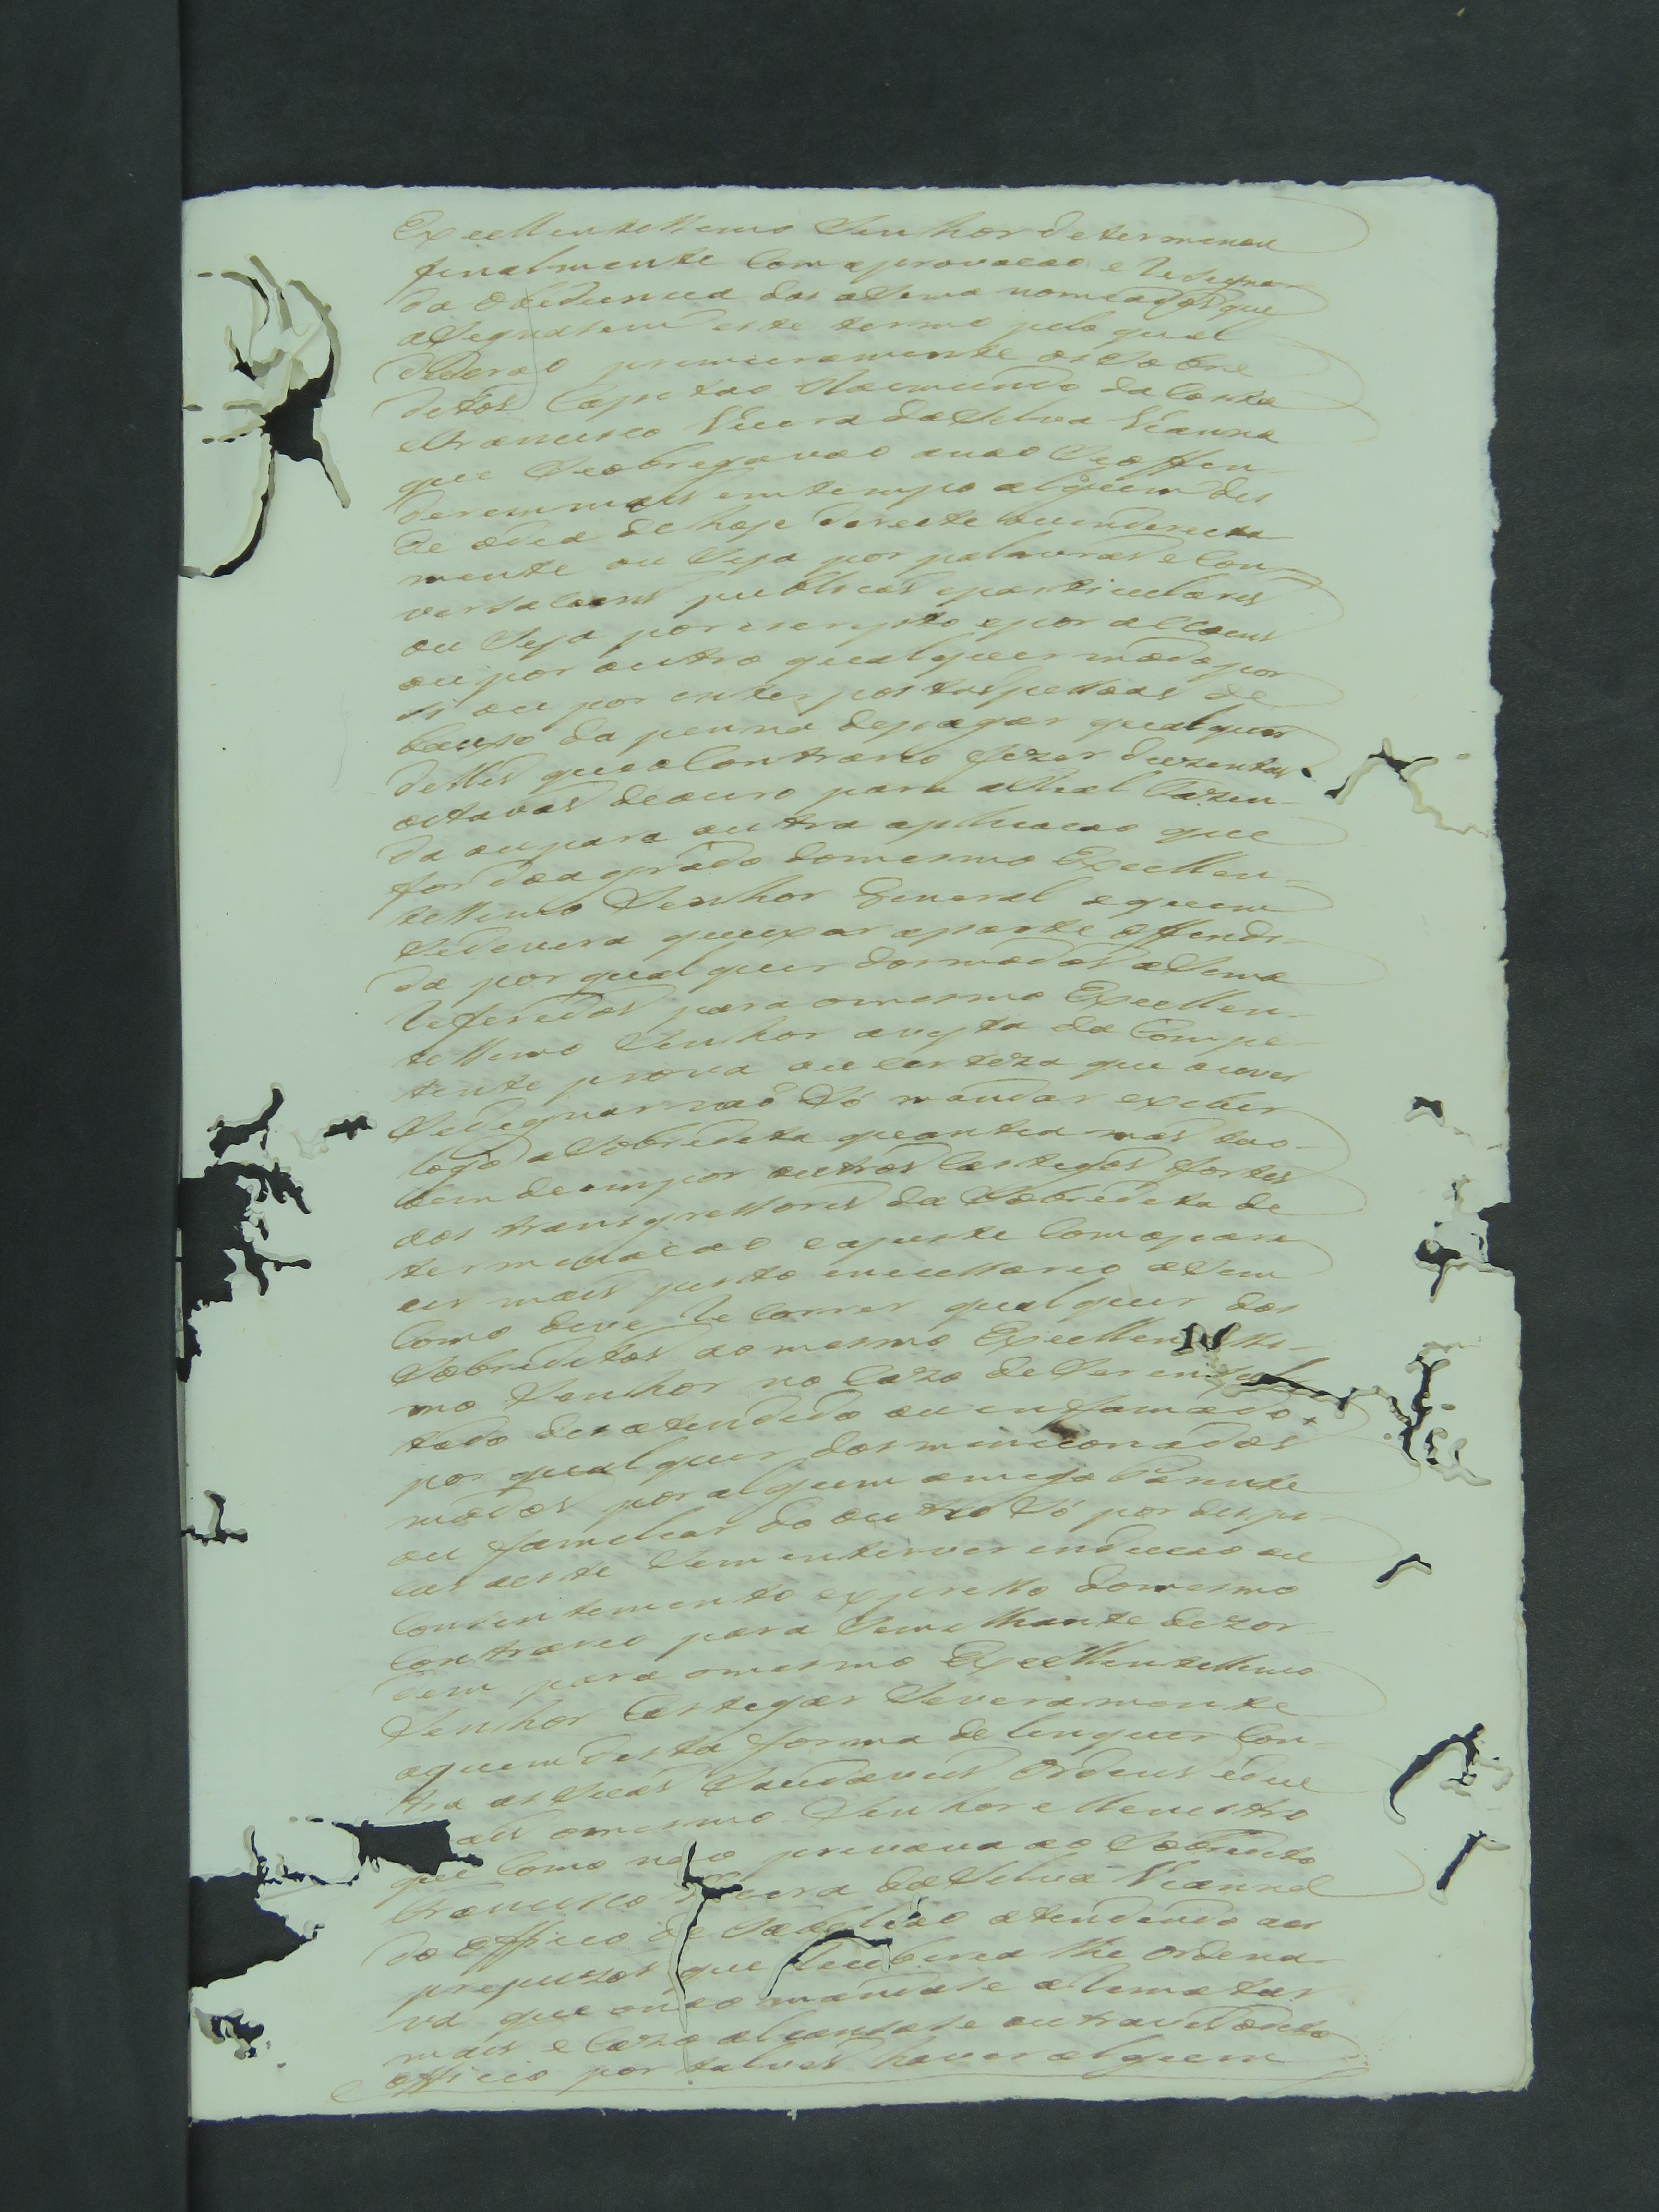 Excellentissimo Senhor determinou
finalmente com aprovacao e Resigna-
da obediencia dos asima nomeados que
asignasem este termo pelo qual
diserao primeiramente os Sobre
ditos Capitao Raimundo da Costa
e Francisco Vieira da Silva Vianna
que Se obrigavao anao Se offen-
derem mais em tempo algum des
de odia de hoje directe ou indirecta-
mente ou Seja por palavras e Con-
versacoens publicas e particulares
ou Seja por escripto e por accoens
ou por outro qualquer modo por
si ou por inter postas pessoas de
baixo da penna de pagar qualquer
delles que o Contrario fizer duzentas
oitavas de ouro para a Real Fazen-
da ou para outra aplicacao que
for do agrado do mesmo Excellen-
tissimo Senhor General a quem
Se devera queixar a parte offendi-
da por qual quer dos modos asima
Referidos para o mesmo Excellen-
tissimo Senhor a vista da Compe-
tente prova ou certeza que ouver
Se dignar nao Só mandar exebir
logo a Sobredita quantia mas tao-
bem de impor outros Castigos fortes
aos transgressores da Sobredita de
terminacao e ajuste Como pare-
cer mais justo e necessario asim
Como deve Re Correr qual quer dos
Sobreditos ao mesmo Excellentissi-
mo Senhor no Cazo de Ser insul-
tado desatendido ou enfamado
por qual quer dos mencionados
modos por algum amigo Parente
ou familiar do outro Só por despi-
car aeste Sem intervir inducao ou
Consentimento expresso do mesmo
Contrario para Semilhante dezor-
dem para o mesmo Excellentissimo
Senhor Castigar Severamente
aquem desta forma de linquir Con-
tra as Suas Saudaveis Ordens e que
o mesmo Senhor e Menistro
que Como nao privava ao Sobredito
Francisco Vieira da Silva Vianna
do Officio de Tabeliao atendendo aos
prejuizos que Recebera lhe ordena-
va que onao mandase aRematar
mais e Cazo alcansase outra vez o dito
Officio por talves haver alguem